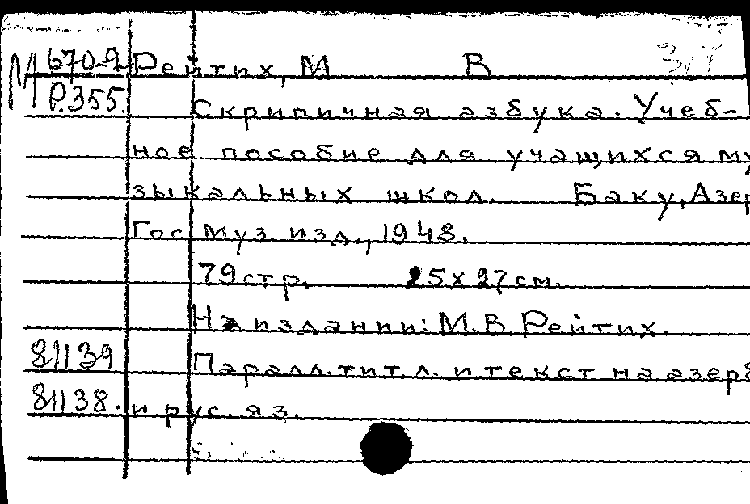 М 670.Я Рейтих, М В
Р.355. Скрипичная азбука. Учеб-
ное пособие для учащихся му
зыкальных школ. Баку, Азер
Гос муз изд., 1948.
79 стр. 25х27 см.
На издании: М.В. Рейтих.
81139 Паралл. тит. л. и текст на азерб
81138. и рус. яз.